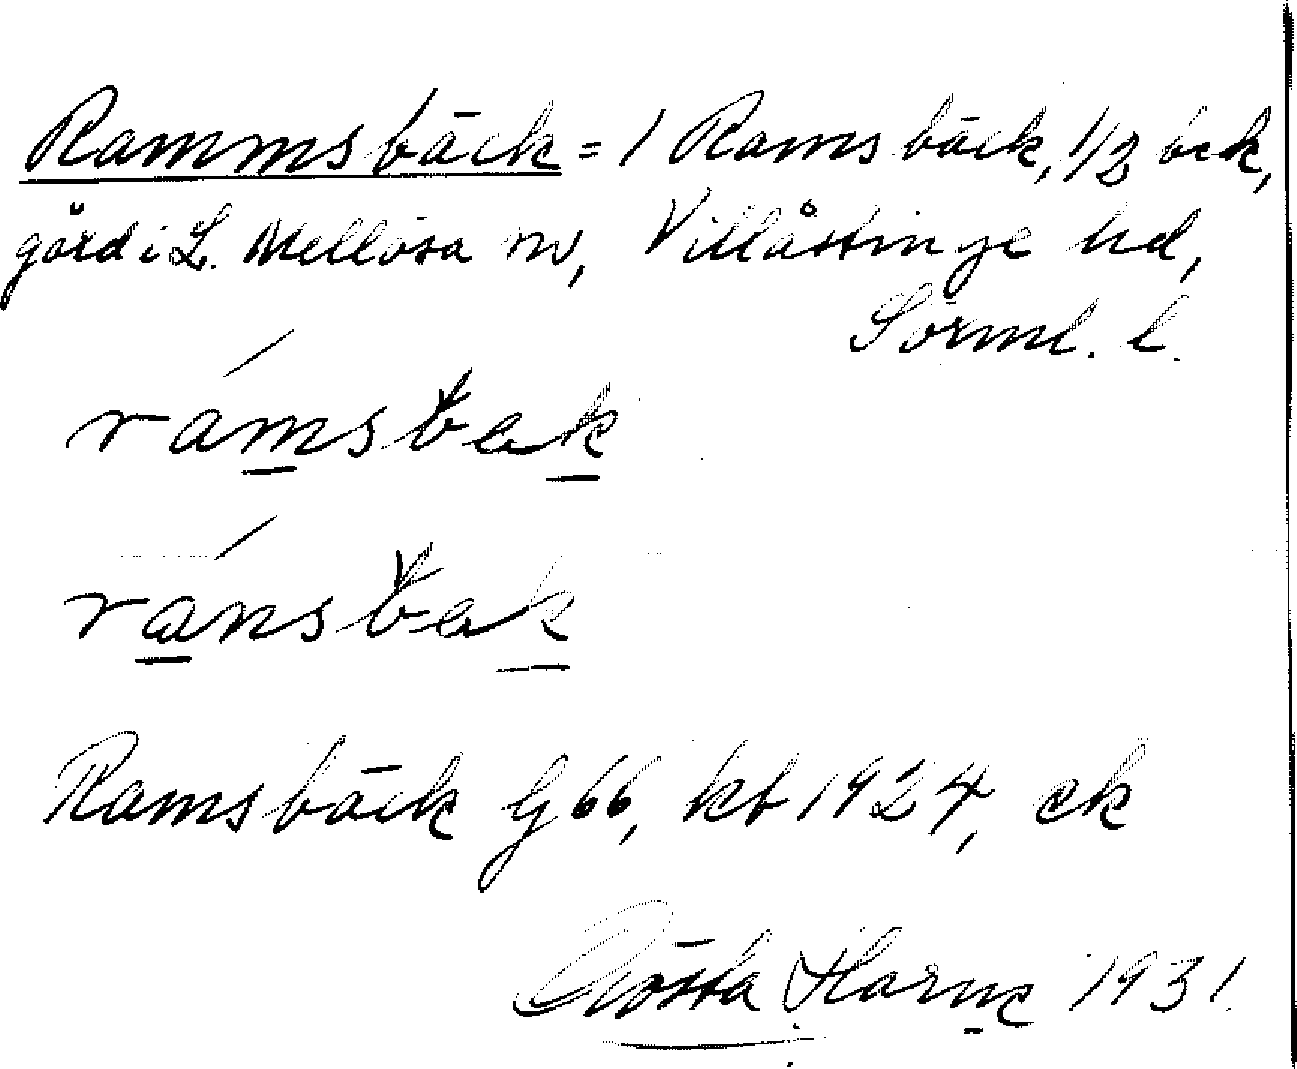 Rammsbäck = 1 Ramsbäck, 1/3 bck,
gård i L. Mellösa sn, Villåttinge hd,
Sörml. l.
rámsbak
ránsbak
Ramsbäck G 66, kb 1924, ck
Gösta Harne 1931.